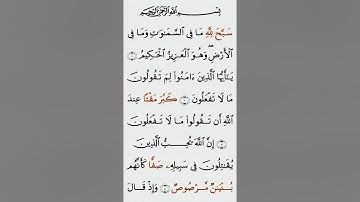 بِسْمِ ٱللَّهِ ٱلرَّحْمَٰنِ ٱلرَّحِيمِ
سَبَّحَ لِلَّهِ مَا فِى ٱلسَّمَٰوَٰتِ وَمَا فِى
ٱلْأَرْضِ ۖ وَهُوَ ٱلْعَزِيزُ ٱلْحَكِيمُ ١
يَٰٓأَيُّهَا ٱلَّذِينَ ءَامَنُوا۟ لِمَ تَقُولُونَ
مَا لَا تَفْعَلُونَ ٢ كَبُرَ مَقْتًا عِندَ
ٱللَّهِ أَن تَقُولُوا۟ مَا لَا تَفْعَلُونَ
٣ إِنَّ ٱللَّهَ يُحِبُّ ٱلَّذِينَ
يُقَٰتِلُونَ فِى سَبِيلِهِۦ صَفًّا كَأَنَّهُم
بُنْيَٰنٌ مَّرْصُوصٌ ٤ وَإِذْ قَالَ